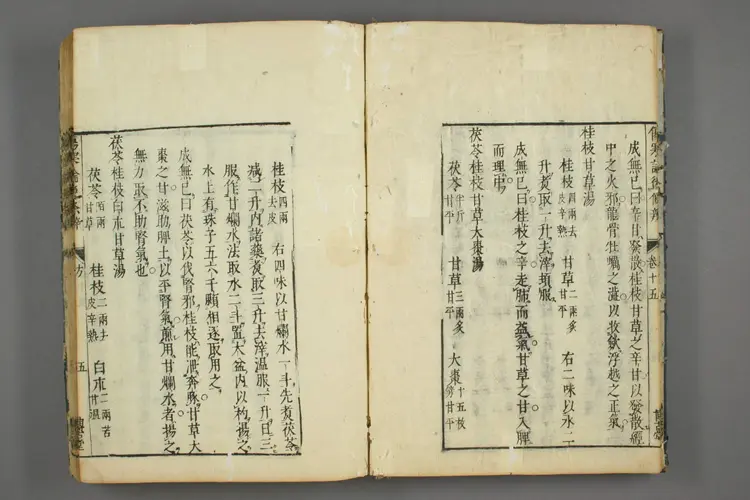 傷寒論後條辨
卷十五
成無已曰辛甘發散桂枝甘草之辛甘以發散經
中之火邪龍骨牡蠣之澁以收歛浮越之正氣
桂枝甘草湯
桂枝四兩去皮辛熱 甘草二兩炙甘平 右二味以水三
升煑取一升去滓頓服
成無已曰桂枝之辛走肺而益氣甘草之甘入脾
而理中
茯苓桂枝甘草大棗湯
茯苓半斤甘平 甘草三兩炙甘平 大棗十五枚擘甘平
桂枝四兩去皮 右四味以甘爛水一斗先煑茯苓
減二升內諸藥煑取三升去滓温服一升日三
服作甘爛水法取水二斗置大盆內以杓揚之
水上有珠子五六千顆相逐取用之
成無已曰茯苓以伐腎邪桂枝能泄奔豚甘草大
棗之甘滋助脾土以平腎氣煎用甘爛水者揚之
無力取不助腎氣也
茯苓桂枝白朮甘草湯
茯苓四兩甘草 桂枝二兩去皮辛熱 白朮二兩苦甘溫
方
五